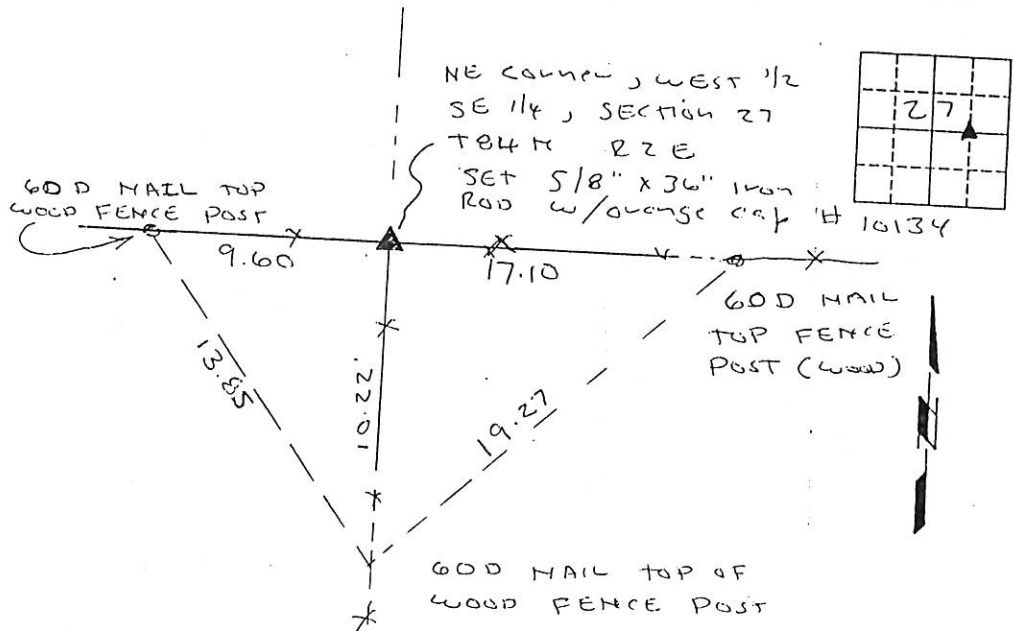 NE CORNER, WEST 1/2
SE 1/4, SECTION 27
T84N R2E
SET 5/8" X 36" IRON
ROD W/ORANGE CAP # 10134
27
60D NAIL TOP
WOOD FENCE POST
9.60
17.10
60D NAIL
TOP FENCE
POST (WOOD)
13.85
22.01
19.27
N
60D NAIL TOP OF
WOOD FENCE POST